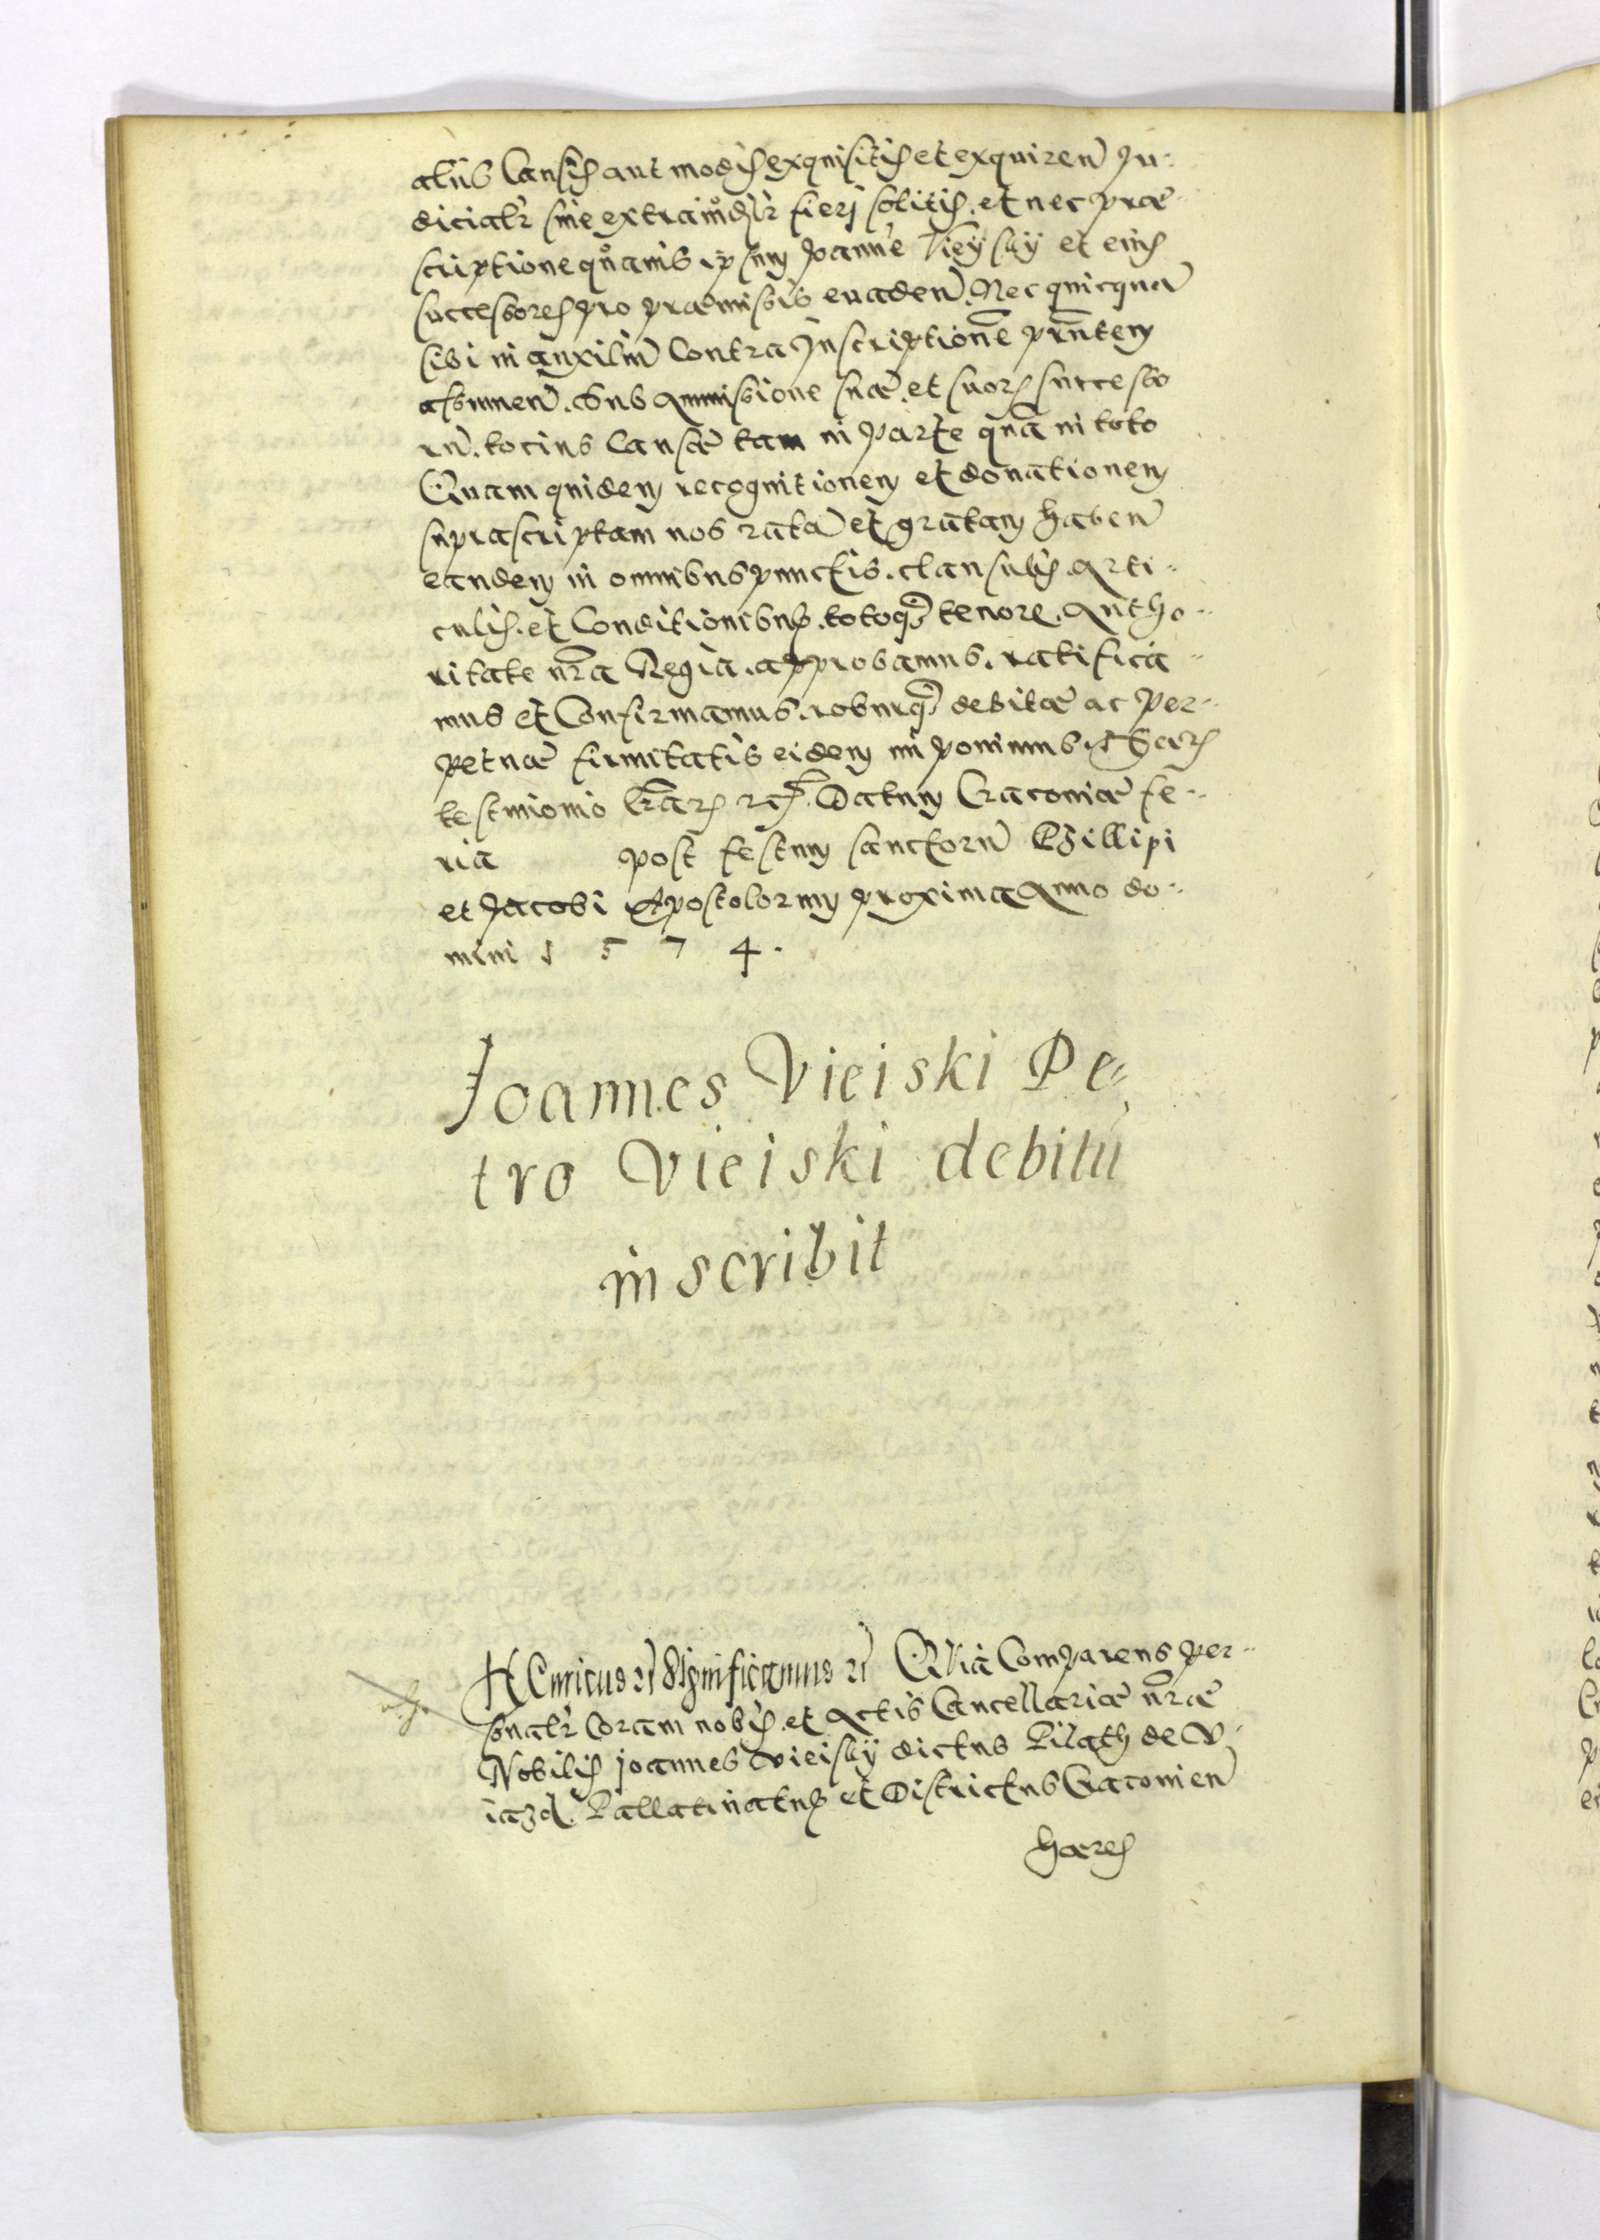 aliis Causis aut modis exquisitis et exquiren Ju-
diciatr sive extraiudtr fieri solitis. et nec præ
scriptione quamvis ipsum Joanne Vieÿskÿ et eius
successores pro præmissis evaden. Nec quicqua
sibi in auxiliu Contra Inscriptione prntem
assumen. Sub Ammissione suæ. et suor successo
ru. totius Causæ tam in parte qua in toto
Quam quidem recognitionem et donationem
suprascriptam nos rata et gratam haben
eandem in omnibus punctis. clausulis. Arti-
culis. et Conditionibus. totoq tenore. Autho-
ritate nra Regia. approbamus. ratifica-
mus et Confirmamus. roburq debitæ ac per-
petuæ firmitatis eidem imponimus. Har
testimonio lrar rc. Datum Cracoviæ fe-
ria post festum sanctoru Phillipi
et Jacobi Apostolorum proxima Anno do-
mini 1 5 7 4.
Joannes Vieiski Pe-
tro Vieiski debitu
inscribit
HEnricus rc Significamus rc Quia Comparens per-
sonalr Coram nobis. et Actis Cancellariæ nræ
Nobilis joannes Vieiskÿ dictus Pilath de V-
iazd. Pallatinatus et Districtus Cracovien
hæres